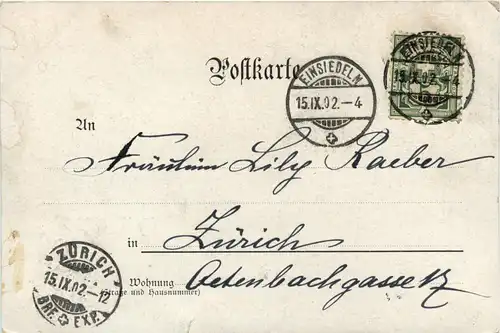 Postkarte
EINSIEDELN
15.IX.02.-4
EINSIEDELN
15.IX.02.-4
An
Fräulein Lily Raeber
in Zürich
Wohnung Oetenbachgasse
(Straße und Hausnummer)
ZÜRICH
15.IX.02.-12
BRF. EXP.